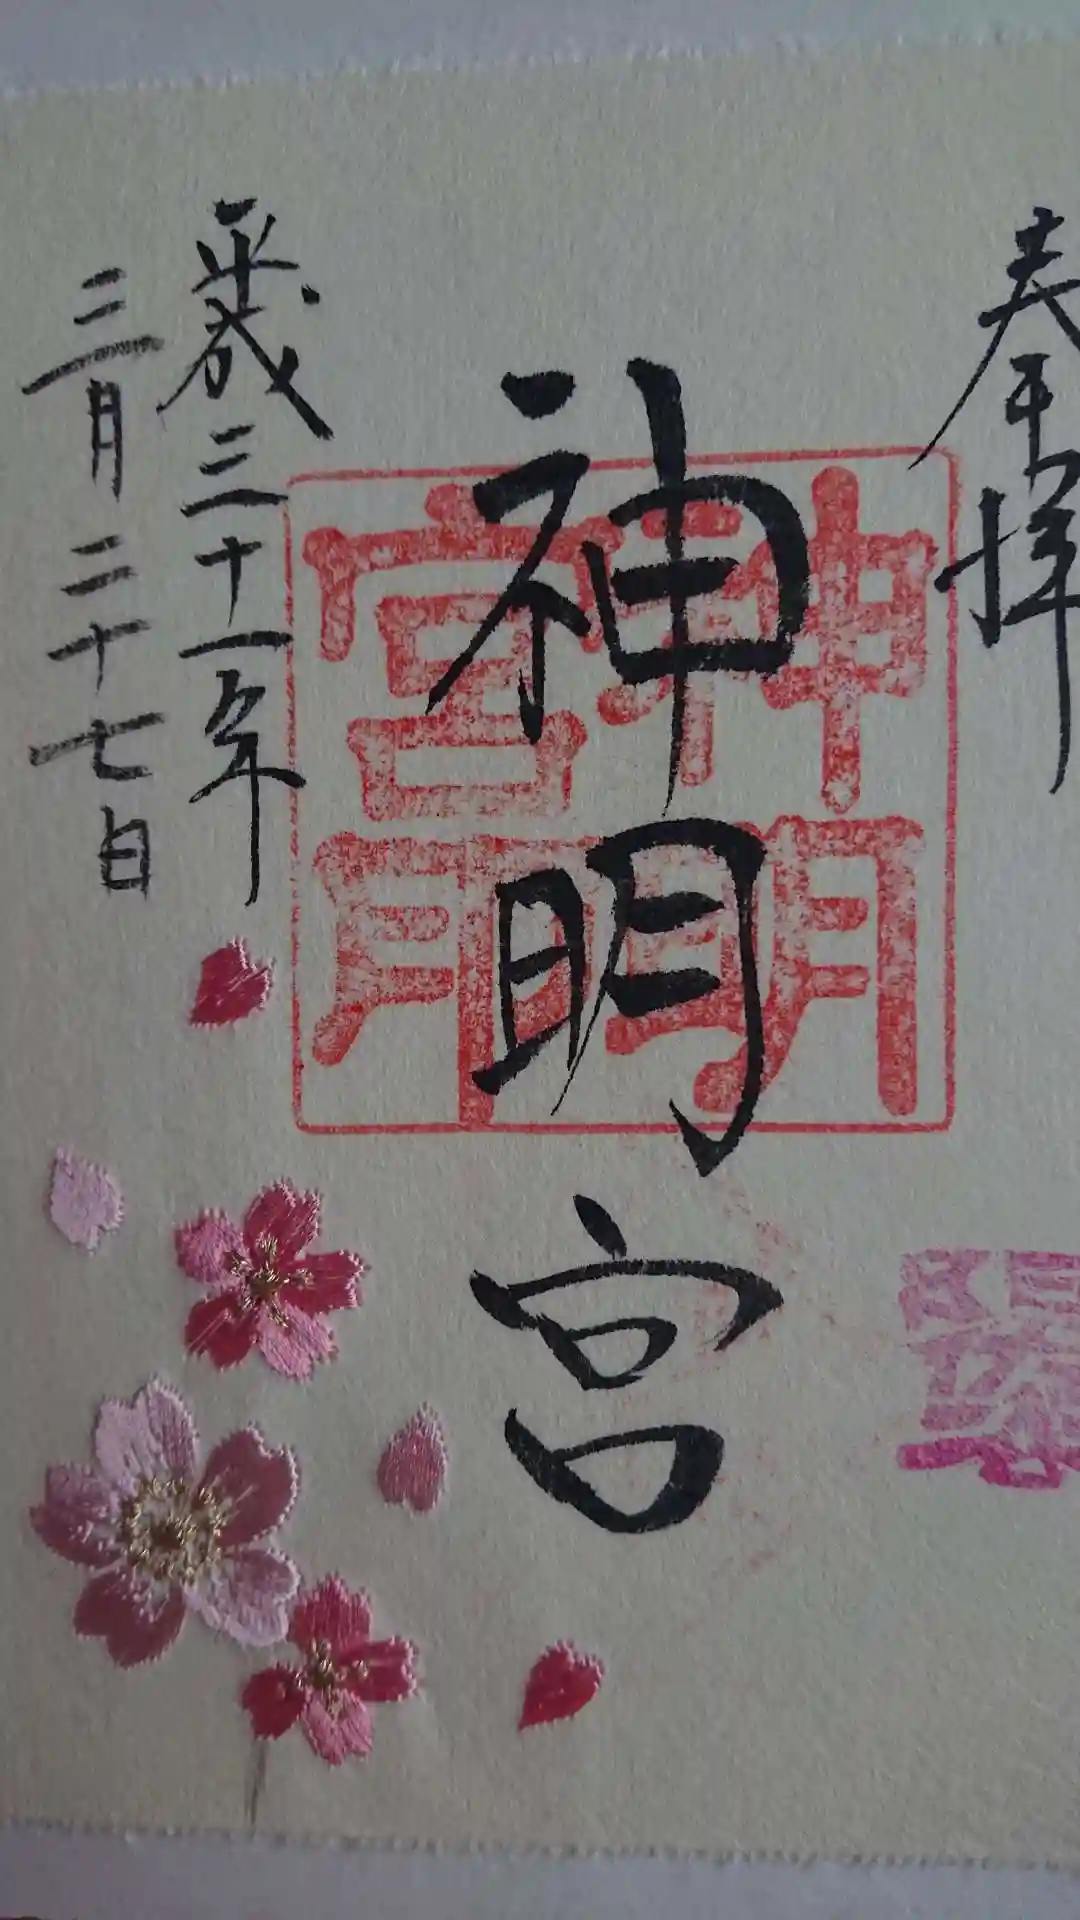 奉拝
神明宮
神明
宮
平成三十一年
三月二十七日